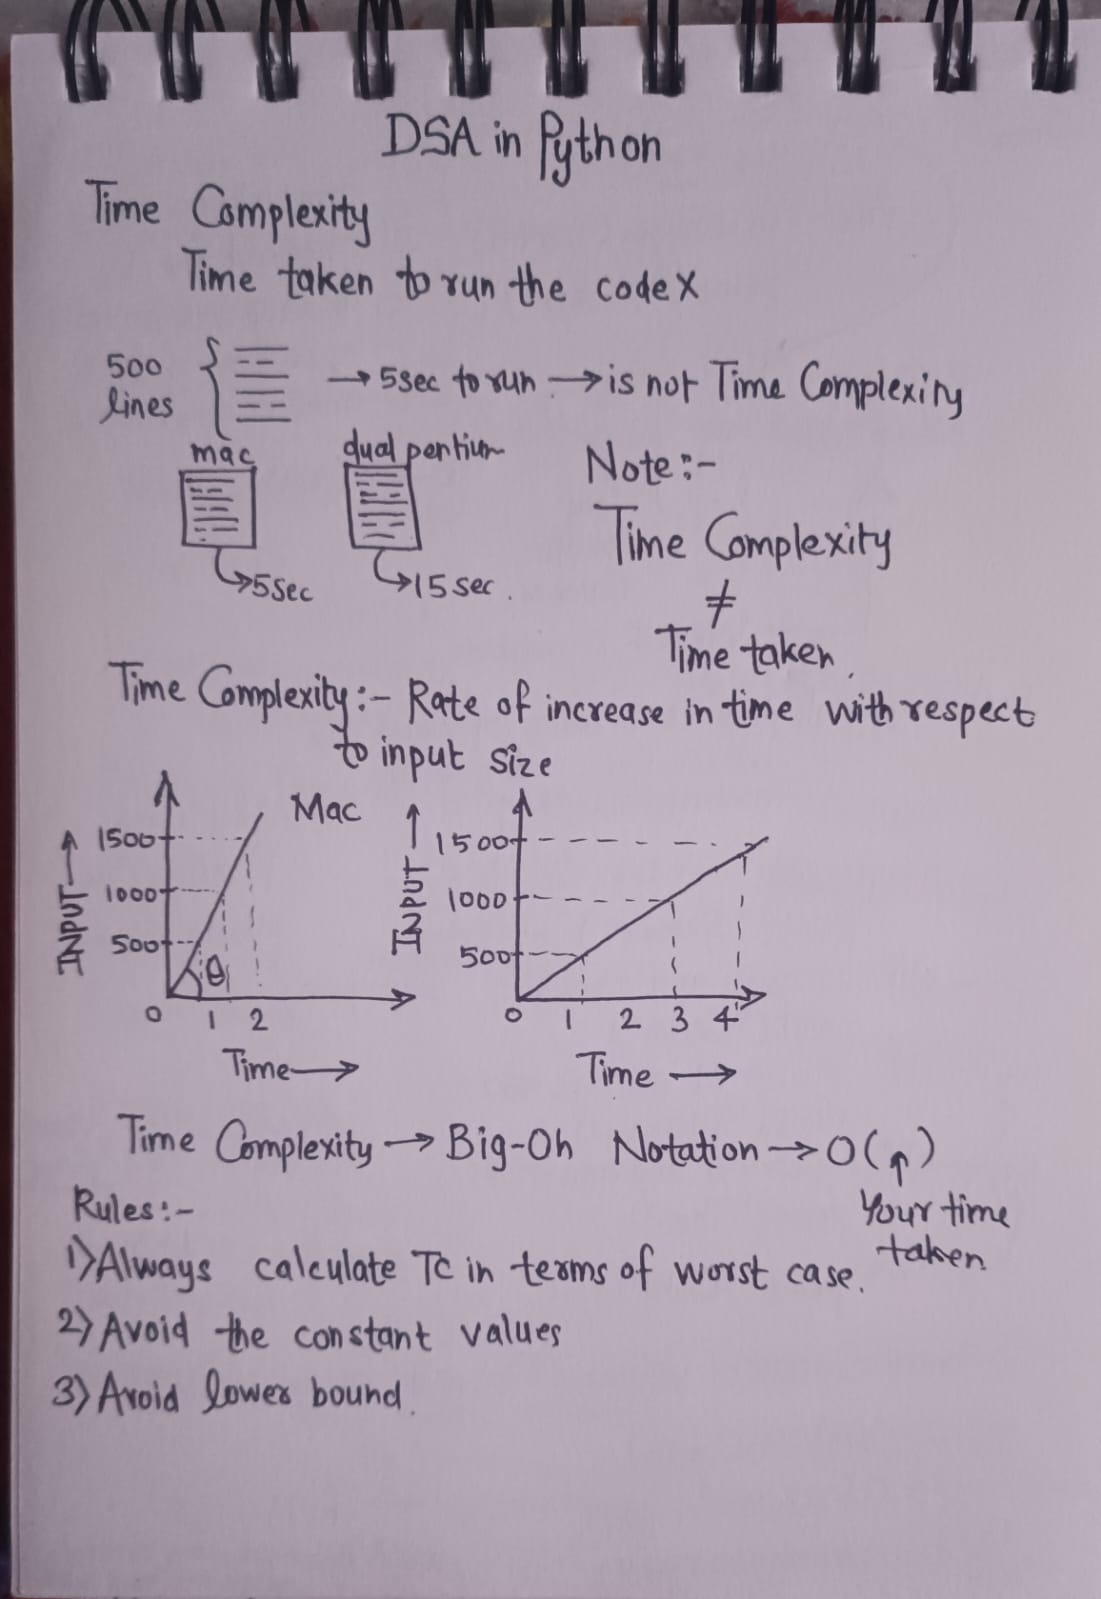 DSA in Python
Time Complexity
Time taken to run the code X
500
lines
→ 5sec to run → is not Time Complexity
mac
dual pentium
Note:-
Time Complexity
≠
Time taken
→5Sec
→15 sec.
Time Complexity:- Rate of increase in time with respect
to input size
Mac
INPUT→
1500
1000
500
θ
0 1 2
Time→
INPUT→
1500
1000
500
0 1 2 3 4
Time →
Time Complexity → Big-Oh Notation → O(↑)
Your time
taken
Rules:-
1) Always calculate TC in terms of worst case.
2) Avoid the constant values
3) Avoid lower bound.